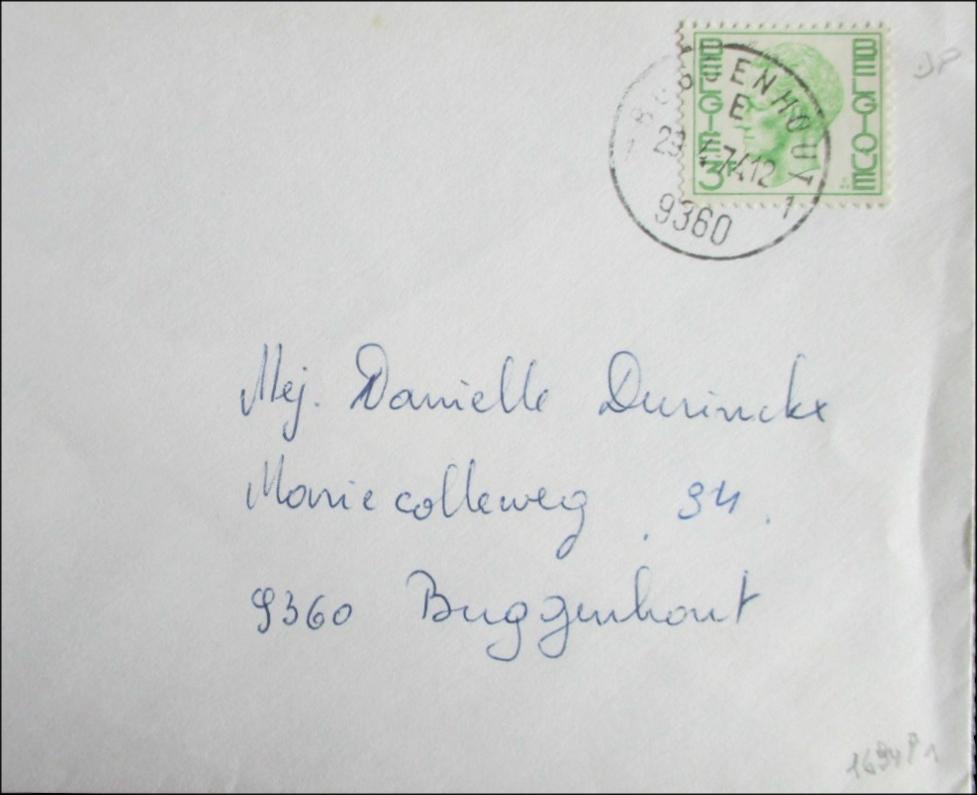 BELGIE 3F
BELGIQUE
BUGGENHOUT 1
E
29 74 12
9360
Mej. Danielle Durinckx
Mariecolleweg 34.
9360 Buggenhout
1694P1